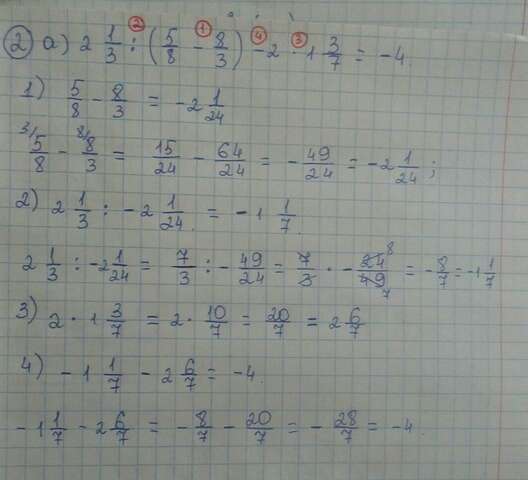 ② ① ④ ③
② а) 2 1/3 : (5/8 - 8/3) - 2 · 1 3/7 = -4
1) 5/8 - 8/3 = -2 1/24
3/ 5/8 - 8/ 8/3 = 15/24 - 64/24 = - 49/24 = -2 1/24 ;
2) 2 1/3 : -2 1/24 = -1 1/7.
2 1/3 : -2 1/24 = 7/3 : - 49/24 = 7/3 · - 24 8/49 7 = - 8/7 = -1 1/7
3) 2 · 1 3/7 = 2 · 10/7 = 20/7 = 2 6/7
4) -1 1/7 - 2 6/7 = -4.
-1 1/7 - 2 6/7 = - 8/7 - 20/7 = - 28/7 = -4